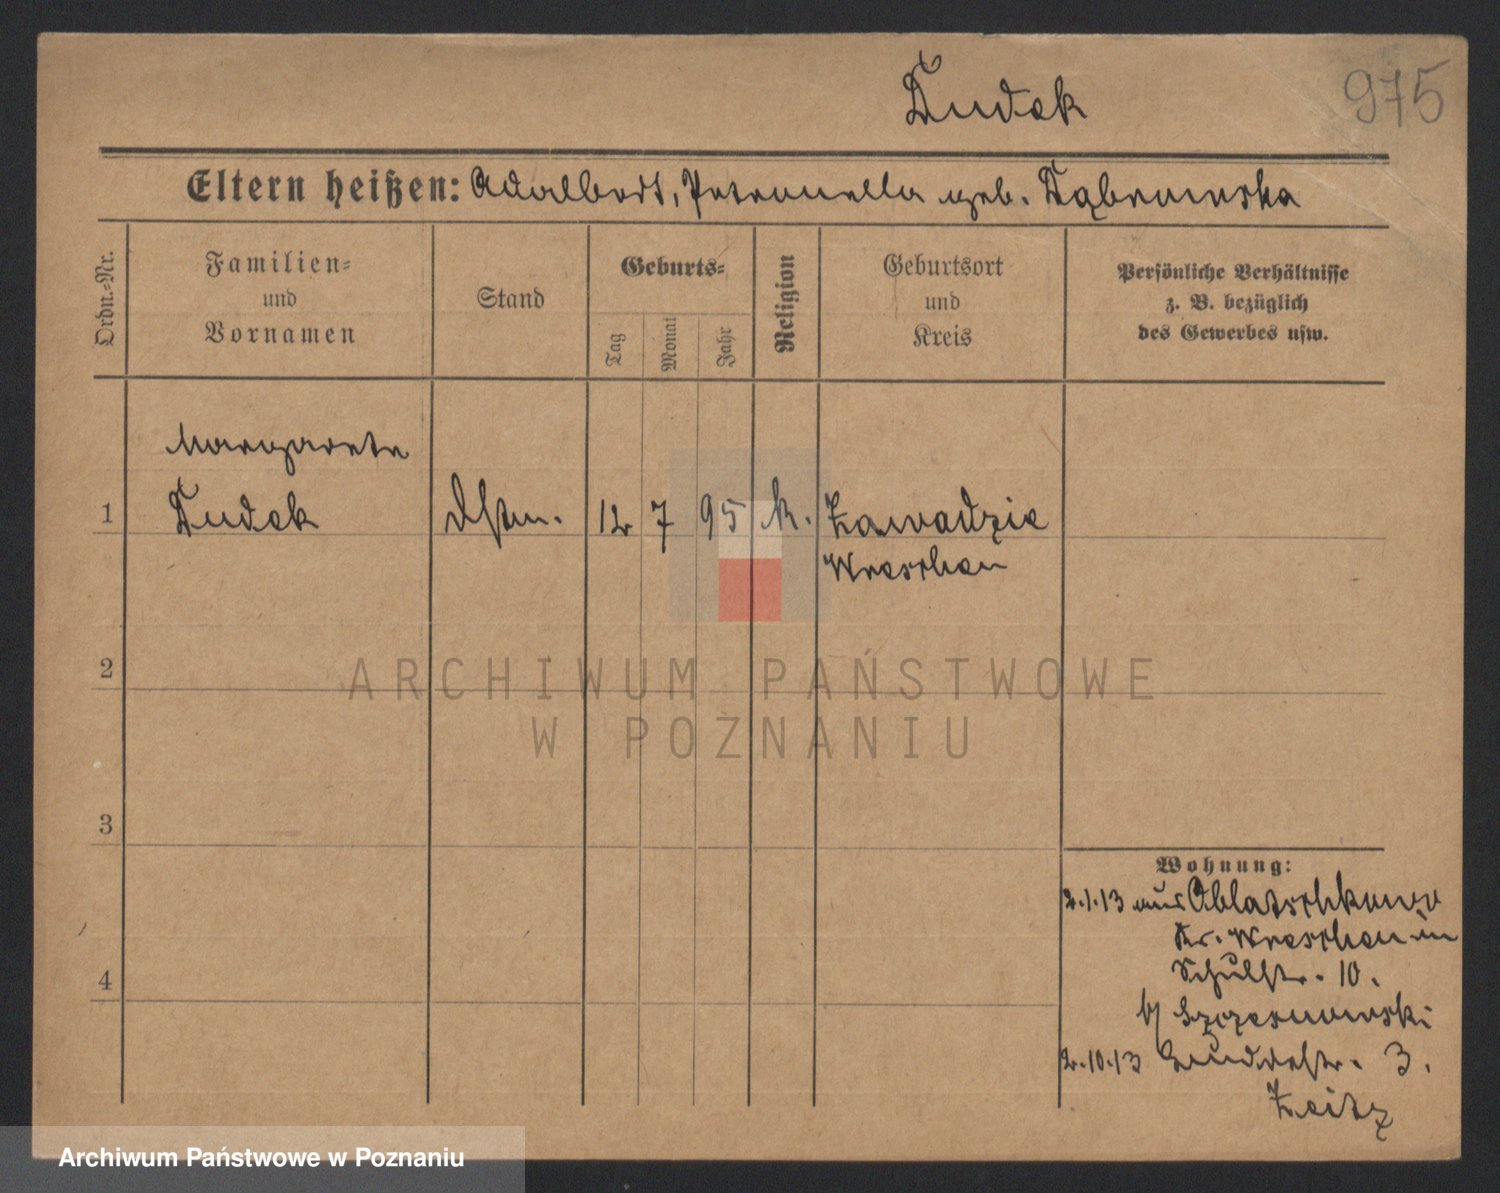 Dudek
975
Eltern heißen: Adalbert, Petronella geb. Dąbrowska
Ordn.-Nr.
Familien-
und
Vornamen
Stand
Geburts-
Tag
Monat
Jahr
Religion
Geburtsort
und
Kreis
Persönliche Verhältnisse
z. B. bezüglich
des Gewerbes usw.
Margarete
1 Dudek Dstm. 12 7 95 k. Zawadzie
Wreschen
2
ARCHIWUM PAŃSTWOWE
W POZNANIU
3
Wohnung:
2.1.13 aus
Kr. Wreschen in
Schulstr. 10.
b/
2.10.13 3.
Zeitz
4
Archiwum Państwowe w Poznaniu